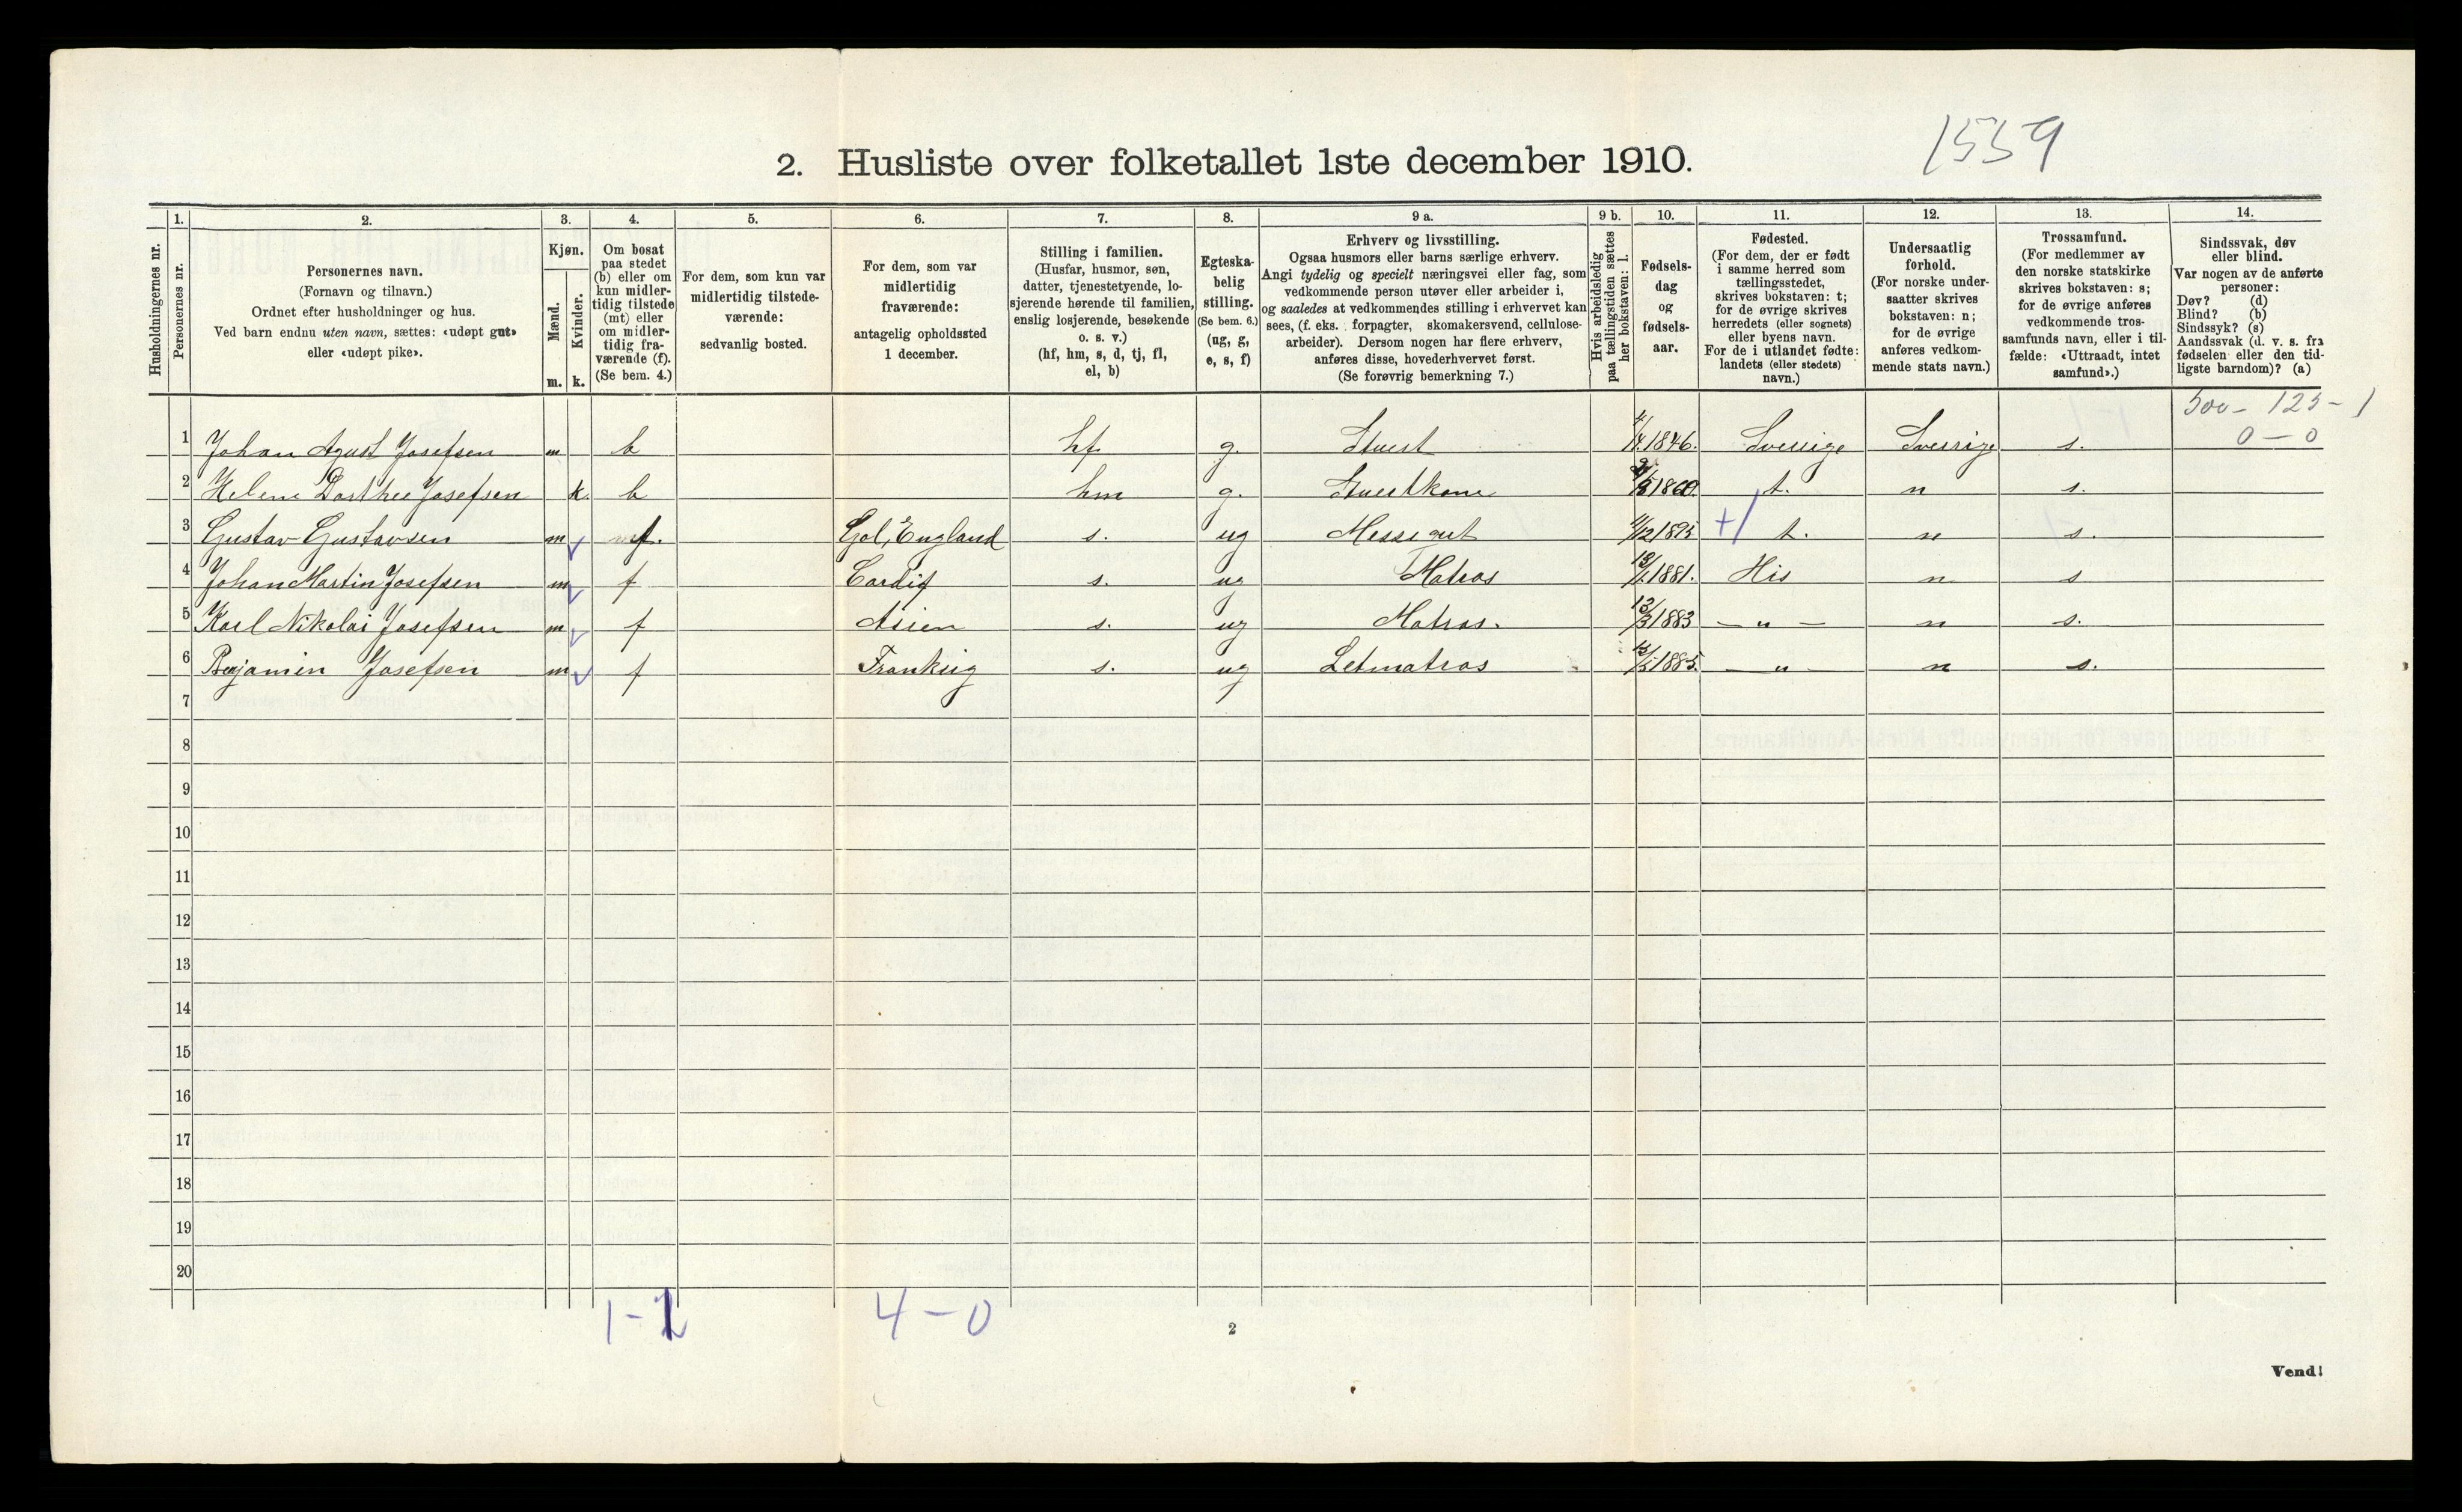 1559
2. Husliste over folketallet 1ste december 1910.
Husholdningernes nr.
1. Personernes nr.
2. Personernes navn.
(Fornavn og tilnavn.)
Ordnet efter husholdninger og hus.
Ved barn endnu uten navn, sættes: «udøpt gut»
eller «udøpt pike».
3. Kjøn.
Mænd. m.
Kvinder. k.
4. Om bosat
paa stedet
(b) eller om
kun midler-
tidig tilstede
(mt) eller
om midler-
tidig fra-
værende (f).
(Se bem. 4.)
5. For dem, som kun var
midlertidig tilstede-
værende:
sedvanlig bosted.
6. For dem, som var
midlertidig
fraværende:
antagelig opholdssted
1 december.
7. Stilling i familien.
(Husfar, husmor, søn,
datter, tjenestetyende, lo-
sjerende hørende til familien,
enslig losjerende, besøkende
o. s. v.)
(hf, hm, s, d, tj, fl,
el, b)
8. Egteska-
belig
stilling.
(Se bem. 6.)
(ug, g,
e, s, f)
9 a. Erhverv og livsstilling.
Ogsaa husmors eller barns særlige erhverv.
Angi tydelig og specielt næringsvei eller fag, som
vedkommende person utøver eller arbeider i,
og saaledes at vedkommendes stilling i erhvervet kan
sees, (f. eks. forpagter, skomakersvend, cellulose-
arbeider). Dersom nogen har flere erhverv,
anføres disse, hovederhvervet først.
(Se forøvrig bemerkning 7.)
9 b. Hvis arbeidsledig
paa tællingstiden sættes
her bokstaven: l.
10. Fødsels-
dag
og
fødsels-
aar.
11. Fødested.
(For dem, der er født
i samme herred som
tællingsstedet,
skrives bokstaven: t;
for de øvrige skrives
herredets (eller sognets)
eller byens navn.
For de i utlandet fødte:
landets (eller stedets)
navn.)
12. Undersaatlig
forhold.
(For norske under-
saatter skrives
bokstaven: n;
for de øvrige
anføres vedkom-
mende stats navn.)
13. Trossamfund.
(For medlemmer av
den norske statskirke
skrives bokstaven: s;
for de øvrige anføres
vedkommende tros-
samfunds navn, eller i til-
fælde: «Uttraadt, intet
samfund».)
14. Sindssvak, døv
eller blind.
Var nogen av de anførte
personer:
Døv? (d)
Blind? (b)
Sindssyk? (s)
Aandssvak (d. v. s. fra
fødselen eller den tid-
ligste barndom)? (a)
500 - 125 - 1
0 - 0
1 Johan Agust Josefsen m b hf. g. Stuert 1846. Sverrige Sverrige s.
2 Helene Dorthee Josefsen k. b hm g. Stuertkone 1860. t. n s.
3 Gustav Gustavsen m f. Gol, England s. ug Messegut 1895 t. n s.
4 Johan Martin Josefsen m f Cardif s. ug Matros 1881. His n s
5 Karl Nikolai Josefsen m f Asien s. ug Matros. 13/3 1883 — " — n s.
6 Benjamin Josefsen m f Frankrig s. ug Letmatros 1885. — " — n s.
7
8
9
10
11
12
13
14
15
16
17
18
19
20
4 - 0
2
Vend!